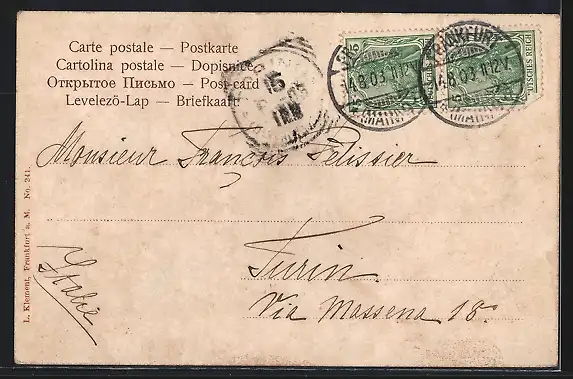 Carte postale — Postkarte
Cartolina postale — Dopisnice
Открытое Письмо — Post-card
Levelező-Lap — Briefkaart
15
FRANKFURT
14.8.03.11-12V.
(MAIN)
5
DEUTSCHES REICH
Monsieur François Pélissier
Turin
Via Massena 18.
Italie
L. Klement, Frankfurt a. M. No. 241.